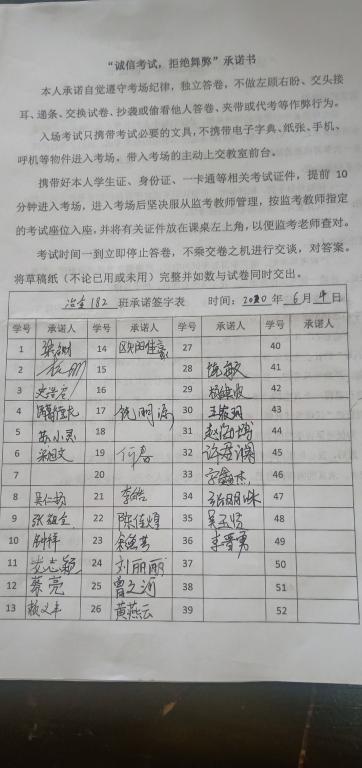 “诚信考试，拒绝舞弊”承诺书
本人承诺自觉遵守考场纪律，独立答卷，不做左顾右盼、交头接
耳、递条、交换试卷、抄袭或偷看他人答卷、夹带或代考等作弊行为。
入场考试只携带考试必要的文具，不携带电子字典、纸张、手机、
呼机等物件进入考场，带入考场的主动上交教室前台。
携带好本人学生证、身份证、一卡通等相关考试证件，提前 10
分钟进入考场，进入考场后坚决服从监考教师管理，按监考教师指定
的考试座位入座，并将有关证件放在课桌左上角，以便监考老师查对。
考试时间一到立即停止答卷，不乘交卷之机进行交谈，对答案。
将草稿纸（不论已用或未用）完整并如数与试卷同时交出。
冶金182 班承诺签字表 时间：2020 年 6月 日
学号 承诺人 学号 承诺人 学号 承诺人 学号 承诺人
1 14 欧阳佳豪 27 40
2 15 28 41
3 16 29 42
4 17 饶丽涛 30 43
5 陈小灵 18 31 44
6 19 何磊 32 许君澜 45
7 20 33 46
8 吴仁扬 21 李皓 34 47
9 22 陈佳煌 35 48
10 钟祥 23 36 李晋勇 49
11 24 刘丽丽 37 50
12 蔡亮 25 曾之河 38 51
13 赖义丰 26 黄燕云 39 52